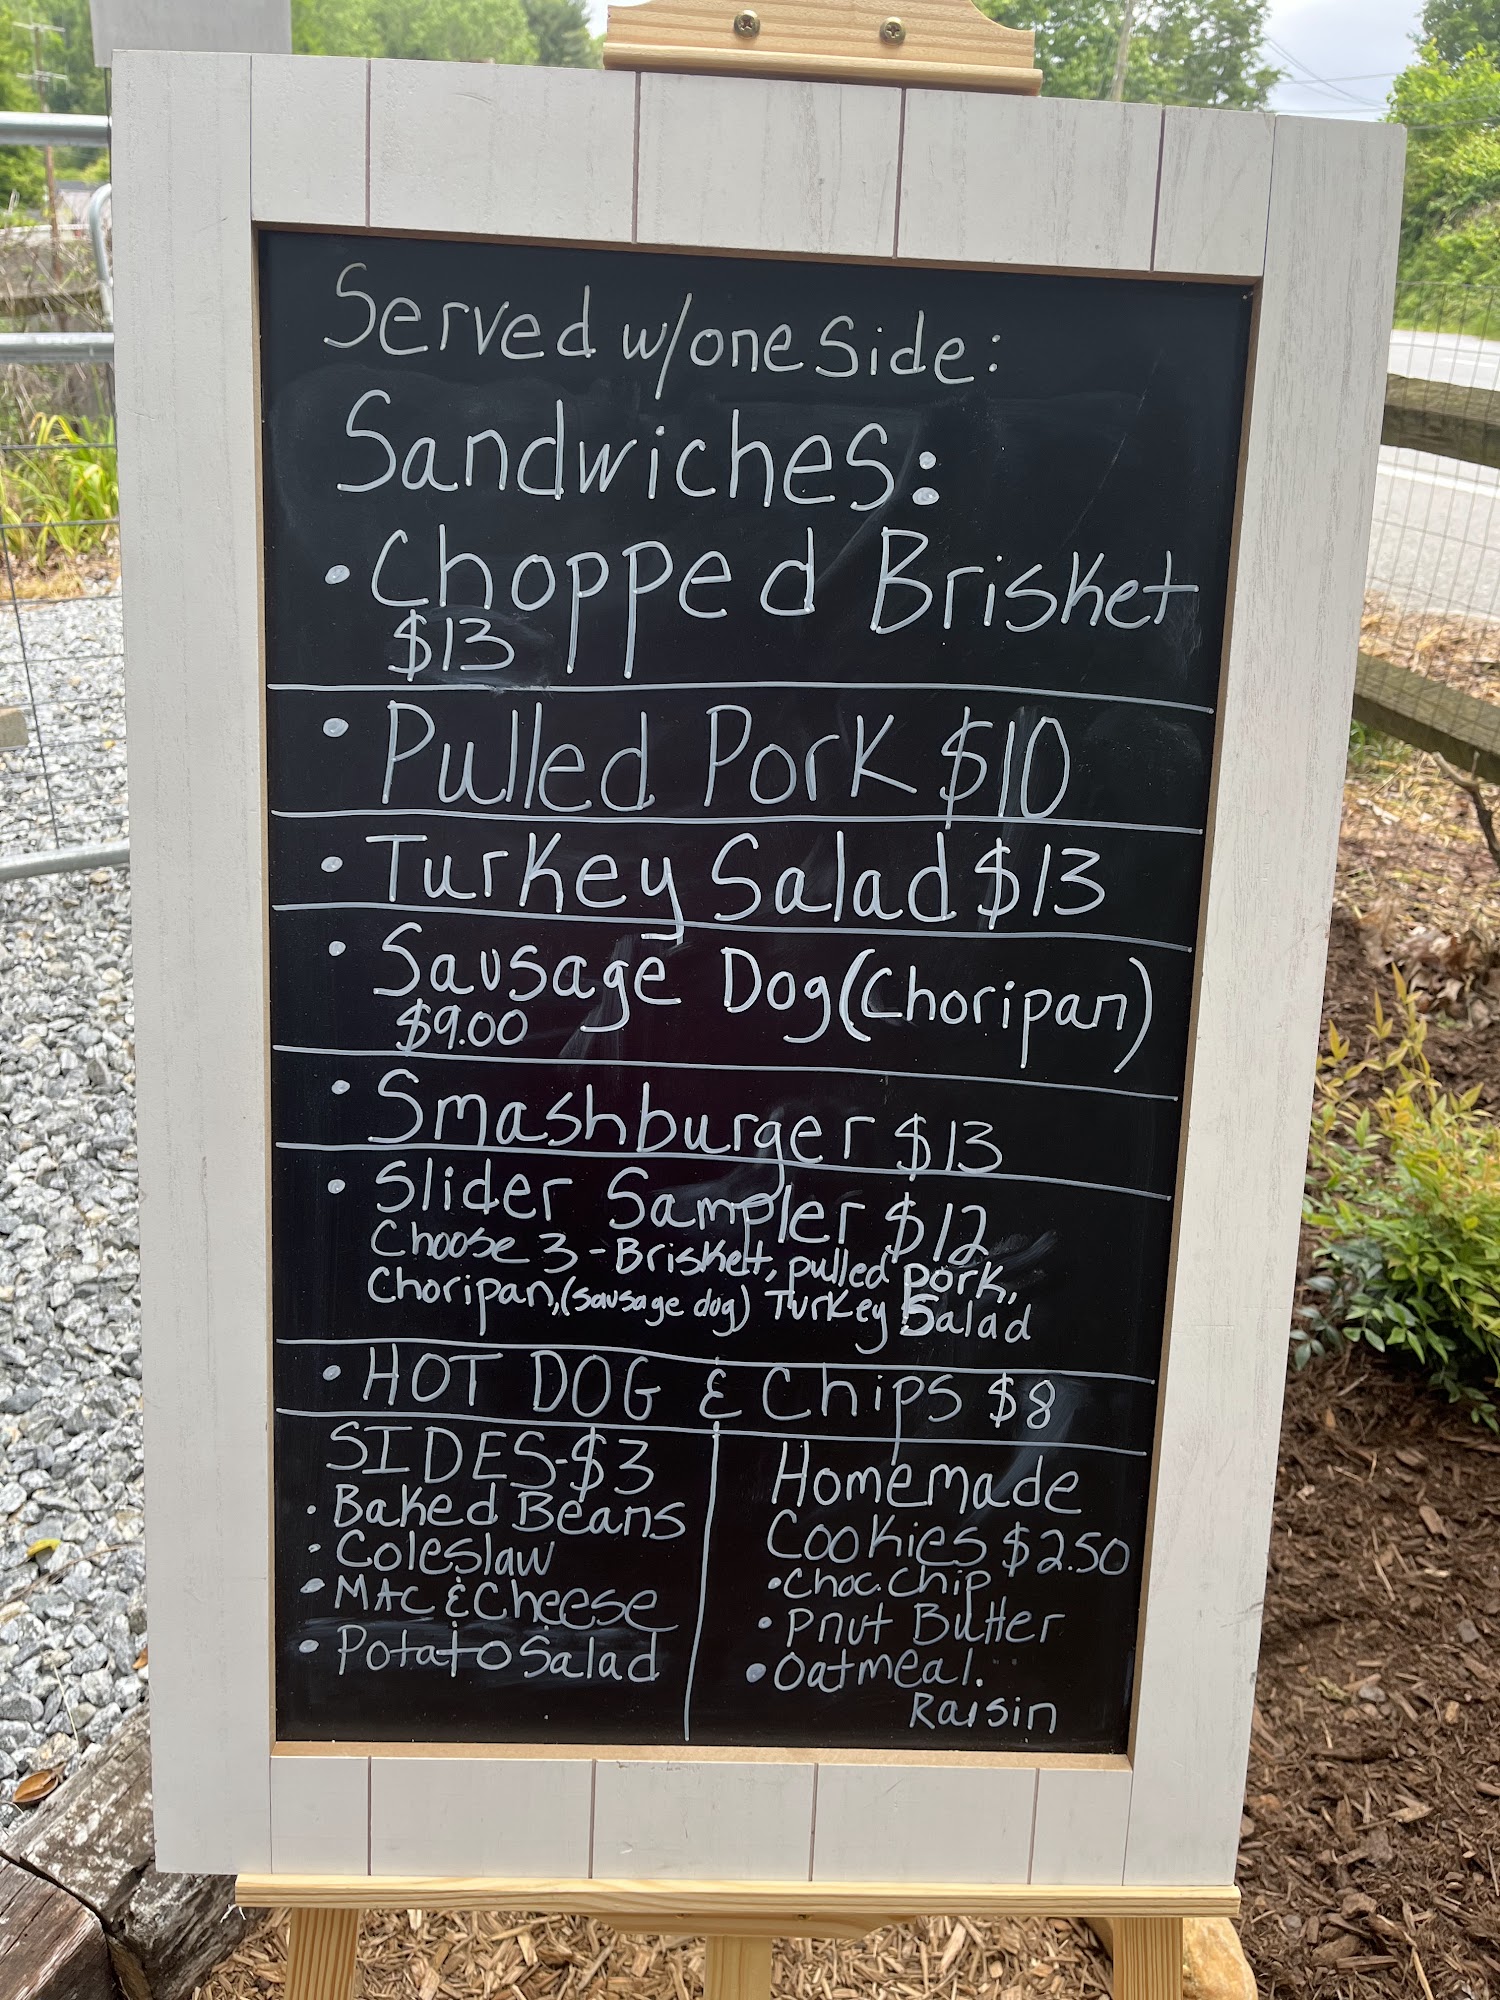 Served w/one Side:
Sandwiches:
• Chopped Brisket
$13
• Pulled Pork $10
• Turkey Salad $13
• Sausage Dog (Choripan)
$9.00
• Smashburger $13
• Slider Sampler $12
Choose 3 - Briskett, pulled pork,
Choripan, (sausage dog) Turkey Salad
• HOT DOG & Chips $8
SIDES-$3
• Baked Beans
• Coleslaw
• MAC & Cheese
• Potato Salad
Homemade
Cookies $2.50
• Choc. Chip
• Pnut Butter
• Oatmeal.
Raisin